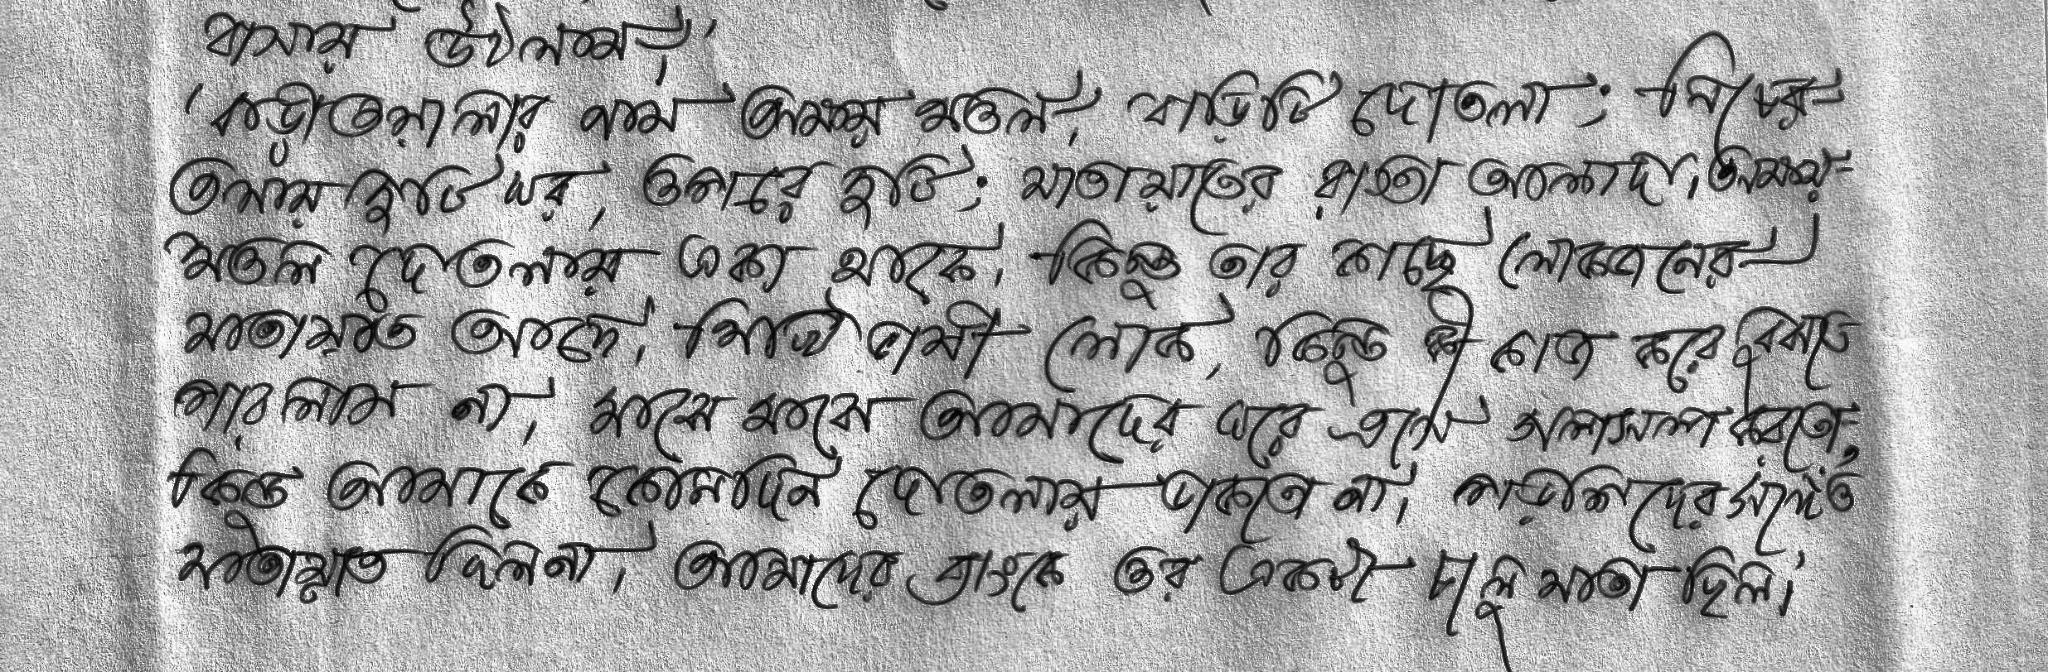 বাসায় উঠলাম।'
'বাড়ীওয়ালার নাম জন্ময় মণ্ডল, বাড়িটি দোতলা; নিচের
তলায় দুটি ঘর, ওপরে দুটি; যাতায়াতের রাস্তা আলাদা। জন্ময়
মণ্ডল দোতলায় একা থাকে। কিন্তু তার কাছে লোকজনের
যাতায়াত আছে। শিখি স্বামী লোক, কিন্তু কী কাজ করে বুঝতে
পারলাম না। মাঝে মাঝে আমাদের ঘরে এসে গল্পসল্প করতো,
কিন্তু আমাকে কোনদিন দোতলায় ডাকতো না। পাড়াপড়শিদের সঙ্গেও
যাতায়াত ছিল না। আমাদের ব্যাংকে ওর একটা চালু খাতা ছিল।'